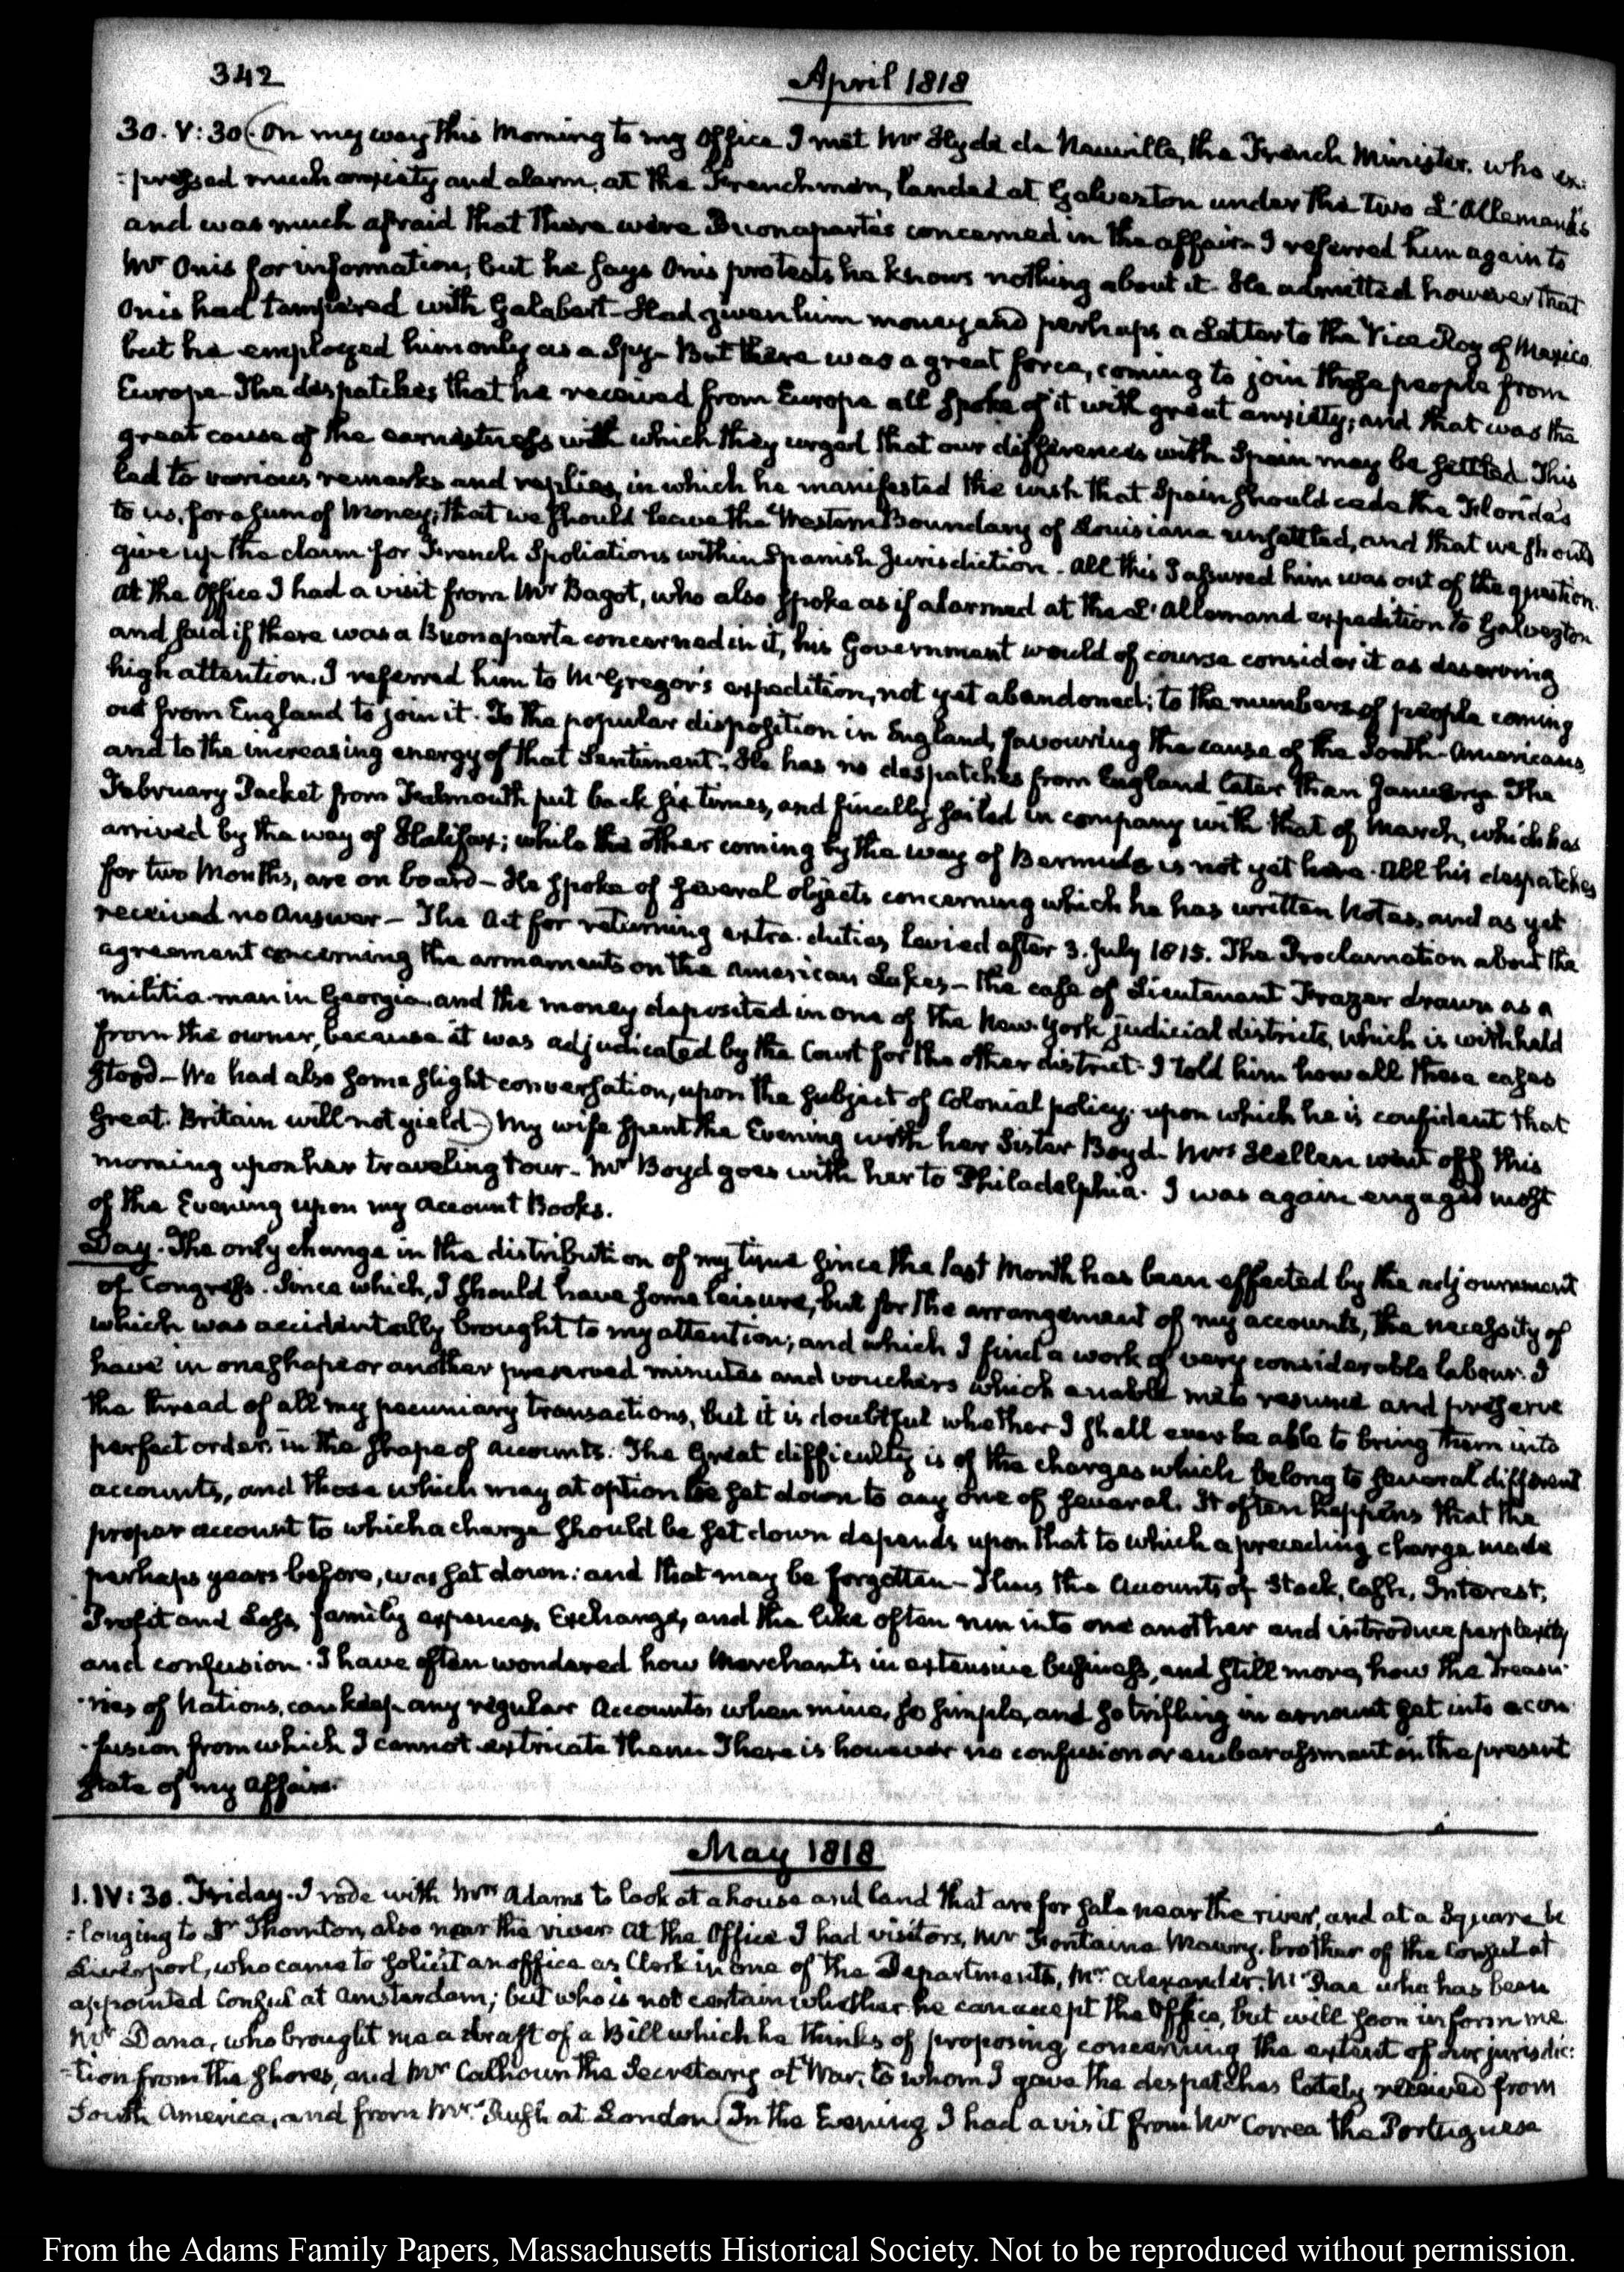 342
April 1818
30. V:30. (On my way this Morning to my Office I met Mr Hyde de Neuville, the French Minister, who ex:
:pressed much anxiety and alarm, at the Frenchmen, landed at Galveston under the two L'Allemand's
and was much afraid that there were Buonaparte's concerned in the affair. I referred him again to
Mr Onis for information, but he says Onis protests he knows nothing about it. He admitted however that
Onis had tampered with Galabert - Had given him money and perhaps a Letter to the Vice Roy of Mexico
but he employed him only as a Spy - But there was a great force, coming to join those people from
Europe. The despatches that he received from Europe all spoke of it with great anxiety; and that was the
great cause of the earnestness with which they urged that our differences with Spain may be settled. This
led to various remarks and replies, in which he manifested the wish that Spain should cede the Florida's
to us, for a sum of Money; that we should leave the Western Boundary of Louisiana unsettled, and that we should
give up the claim for French Spoliations within Spanish Jurisdiction. All this I assured him was out of the question.
At the Office I had a visit from Mr Bagot, who also spoke as if alarmed at the L'Allemand expedition to Galveston
and said if there was a Buonaparte concerned in it, his Government would of course consider it as deserving
high attention. I referred him to McGregor's expedition, not yet abandoned; to the numbers of people coming
out from England to join it. To the popular disposition in England, favouring the cause of the South-Americans,
and to the increasing energy of that Sentiment. He has no despatches from England later than January. The
February Packet from Falmouth put back six times, and finally sailed in company with that of March, which has
arrived by the way of Halifax; while the other coming by the way of Bermuda is not yet here. All his despatches
for two Months, are on board - He spoke of several objects concerning which he has written Notes, and as yet
received no Answer - The Act for returning extra-duties levied after 3. July 1815. The Proclamation about the
agreement concerning the armaments on the American Lakes - the case of Lieutenant Frazer drawn as a
militia-man in Georgia, and the money deposited in one of the New-York judicial districts, which is withheld
from the owner, because it was adjudicated by the Court for the other district. I told him how all these cases
stood - We had also some slight conversation, upon the subject of Colonial policy, upon which he is confident that
Great-Britain will not yield.) My wife spent the Evening with her Sister Boyd. Mrs Hellen went off this
morning upon her traveling tour - Mr Boyd goes with her to Philadelphia. I was again engaged most
of the Evening upon my Account Books.
Day. The only change in the distribution of my time since the last Month has been effected by the adjournment
of Congress. Since which, I should have some leisure, but for the arrangement of my accounts, the necessity of
which was accidentally brought to my attention; and which I find a work of very considerable labour. I
have in one shape or another preserved minutes and vouchers which enable me to resume and preserve
the thread of all my pecuniary transactions, but it is doubtful whether I shall ever be able to bring them into
perfect order, in the shape of Accounts. The Great difficulty is of the charges which belong to several different
accounts, and those which may at option be set down to any one of several. It often happens that the
proper account to which a charge should be set down depends upon that to which a preceding charge made
perhaps years before, was set down: and that may be forgotten - Thus the Accounts of Stock, Cash, Interest,
Profit and Loss, family expences, Exchange, and the like often run into one another and introduce perplexity
and confusion. I have often wondered how Merchants in extensive business, and still more, how the Treasu-
-ries of Nations, can keep any regular Accounts when mine, so simple, and so trifling in amount get into a con
-fusion from which I cannot extricate them. There is however no confusion or embarassment in the present
State of my Affairs.
May 1818
1. IV:30. Friday. I rode with Mrs Adams to look at a house and land that are for sale near the river, and at a Square be
:longing to Dr Thornton, also near the river. At the Office I had visitors, Mr Fontaine Maury, brother of the Consul at
Liverpool, who came to solicit an office as Clerk in one of the Departments, Mr Alexander McRae who has been
appointed Consul at Amsterdam; but who is not certain whether he can accept the Office, but will soon inform me
Mr Dana, who brought me a draft of a Bill which he thinks of proposing concerning the extent of our jurisdic:
-tion from the shores, and Mr Calhoun the Secretary of War, to whom I gave the despatches lately received from
South America, and from Mr Rush at London (In the Evening I had a visit from Mr Correa the Portuguese
From the Adams Family Papers, Massachusetts Historical Society. Not to be reproduced without permission.